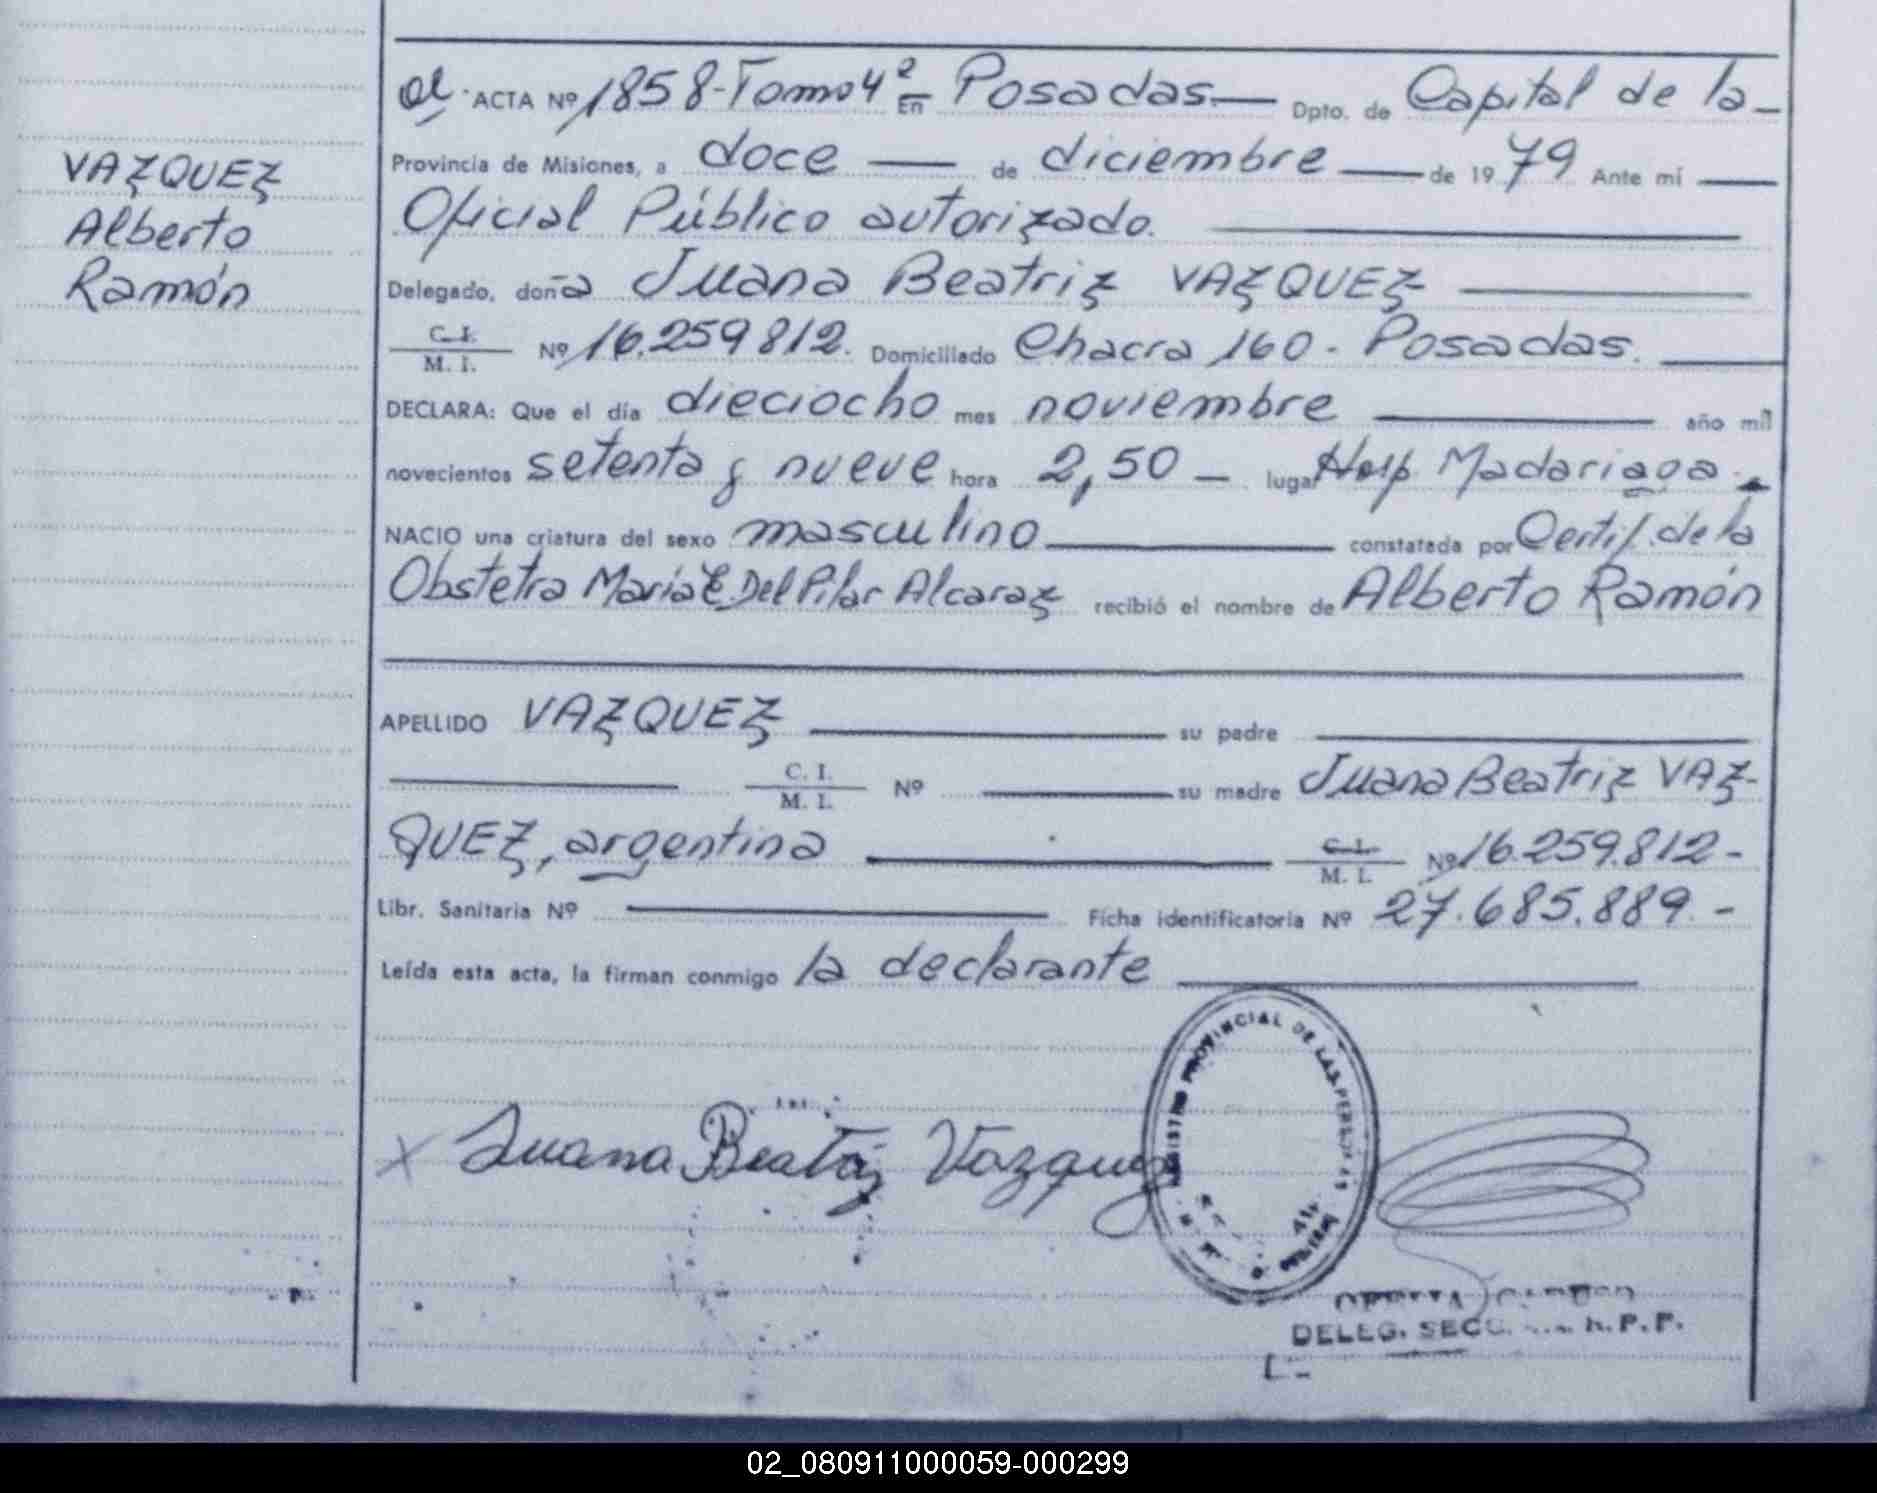 VAZQUEZ
Alberto
Ramón
ACTA Nº 1858-Tomo 4º En Posadas.— Dpto. de Capital de la—
Provincia de Misiones, a doce — de diciembre — de 1979 Ante mí —
Oficial Público autorizado. —
Delegado, doña Juana Beatriz VAZQUEZ —
C. I.
M. I. Nº 16.259812. Domiciliado Chacra 160 - Posadas. —
DECLARA: Que el día dieciocho mes noviembre — año mil
novecientos setenta y nueve hora 2,50 — lugar Hosp Madariaga.-
NACIO una criatura del sexo masculino — constatada por Certif. de la
Obstetra María E. Del Pilar Alcaraz recibió el nombre de Alberto Ramón
APELLIDO VAZQUEZ — su padre —
— C. I.
M. I. Nº — su madre Juana Beatriz VAZ-
QUEZ, argentina — C. I.
M. I. Nº 16.259.812-
Libr. Sanitaria Nº — Ficha identificatoria Nº 27.685.889.-
Leída esta acta, la firman conmigo la declarante —
X Juana Beatriz Vazquez
REGISTRO PROVINCIAL DE LAS PERSONAS
DELEG. SECC. R.P.P.
02_080911000059-000299